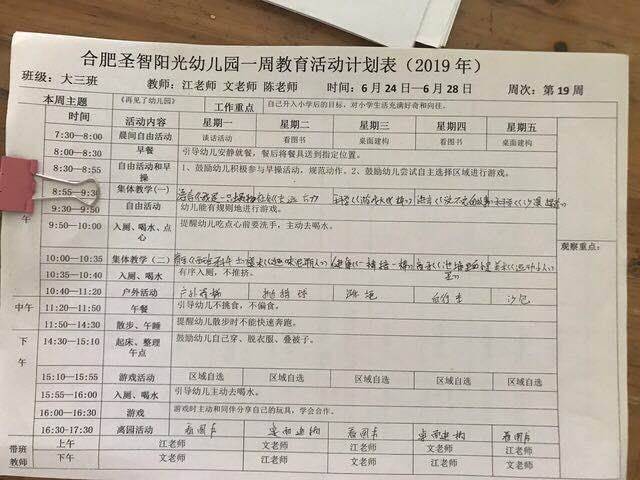 合肥圣智阳光幼儿园一周教育活动计划表（2019 年）
班级：大三班 教师：江老师 文老师 陈老师 时间：6 月 24 日—6 月 28 日 周次：第 19 周
本周主题 《再见了幼儿园》 工作重点 自己升入小学后的目标，对小学生活充满好奇和向往。
时间 活动内容 星期一 星期二 星期三 星期四 星期五
7:30—8:00 晨间自由活动 谈话活动 看图书 桌面建构 看图书 桌面建构
8:00—8:30 早餐 引导幼儿安静就餐，餐后将餐具送到指定位置。
8:30—8:55 自由活动和早操 1、鼓励幼儿积极参与早操活动，规范动作。2、鼓励幼儿尝试自主选择区域进行游戏。
8:55—9:30 集体教学（一）
9:30—9:50 自由活动 幼儿能有规则地进行游戏。
午
9:50—10:00 入厕、喝水、点心 提醒幼儿吃点心前要洗手，主动去喝水。
观察重点：
10:00—10:35 集体教学（二）
10:35—10:40 入厕、喝水 有序入厕，不推挤。
10:40—11:20 户外活动 沙包
中午 11:20—11:50 午餐 引导幼儿不挑食，不偏食。
11:50—14:30 散步、午睡 提醒幼儿散步时不能快速奔跑。
下午 14:30—15:10 起床、整理 午点 鼓励幼儿自己穿、脱衣服、叠被子。
15:10—15:55 游戏活动 区域自选 区域自选 区域自选 区域自选 区域自选
15:55—16:00 入厕、喝水 引导幼儿主动去喝水。
16:00—16:30 游戏 游戏时主动和同伴分享自己的玩具，学会合作。
16:30-17:30 离园活动 看图书 桌面建构 看图书 桌面建构 看图书
带班教师 上午 江老师 文老师 江老师 文老师 江老师
下午 文老师 江老师 文老师 江老师 文老师